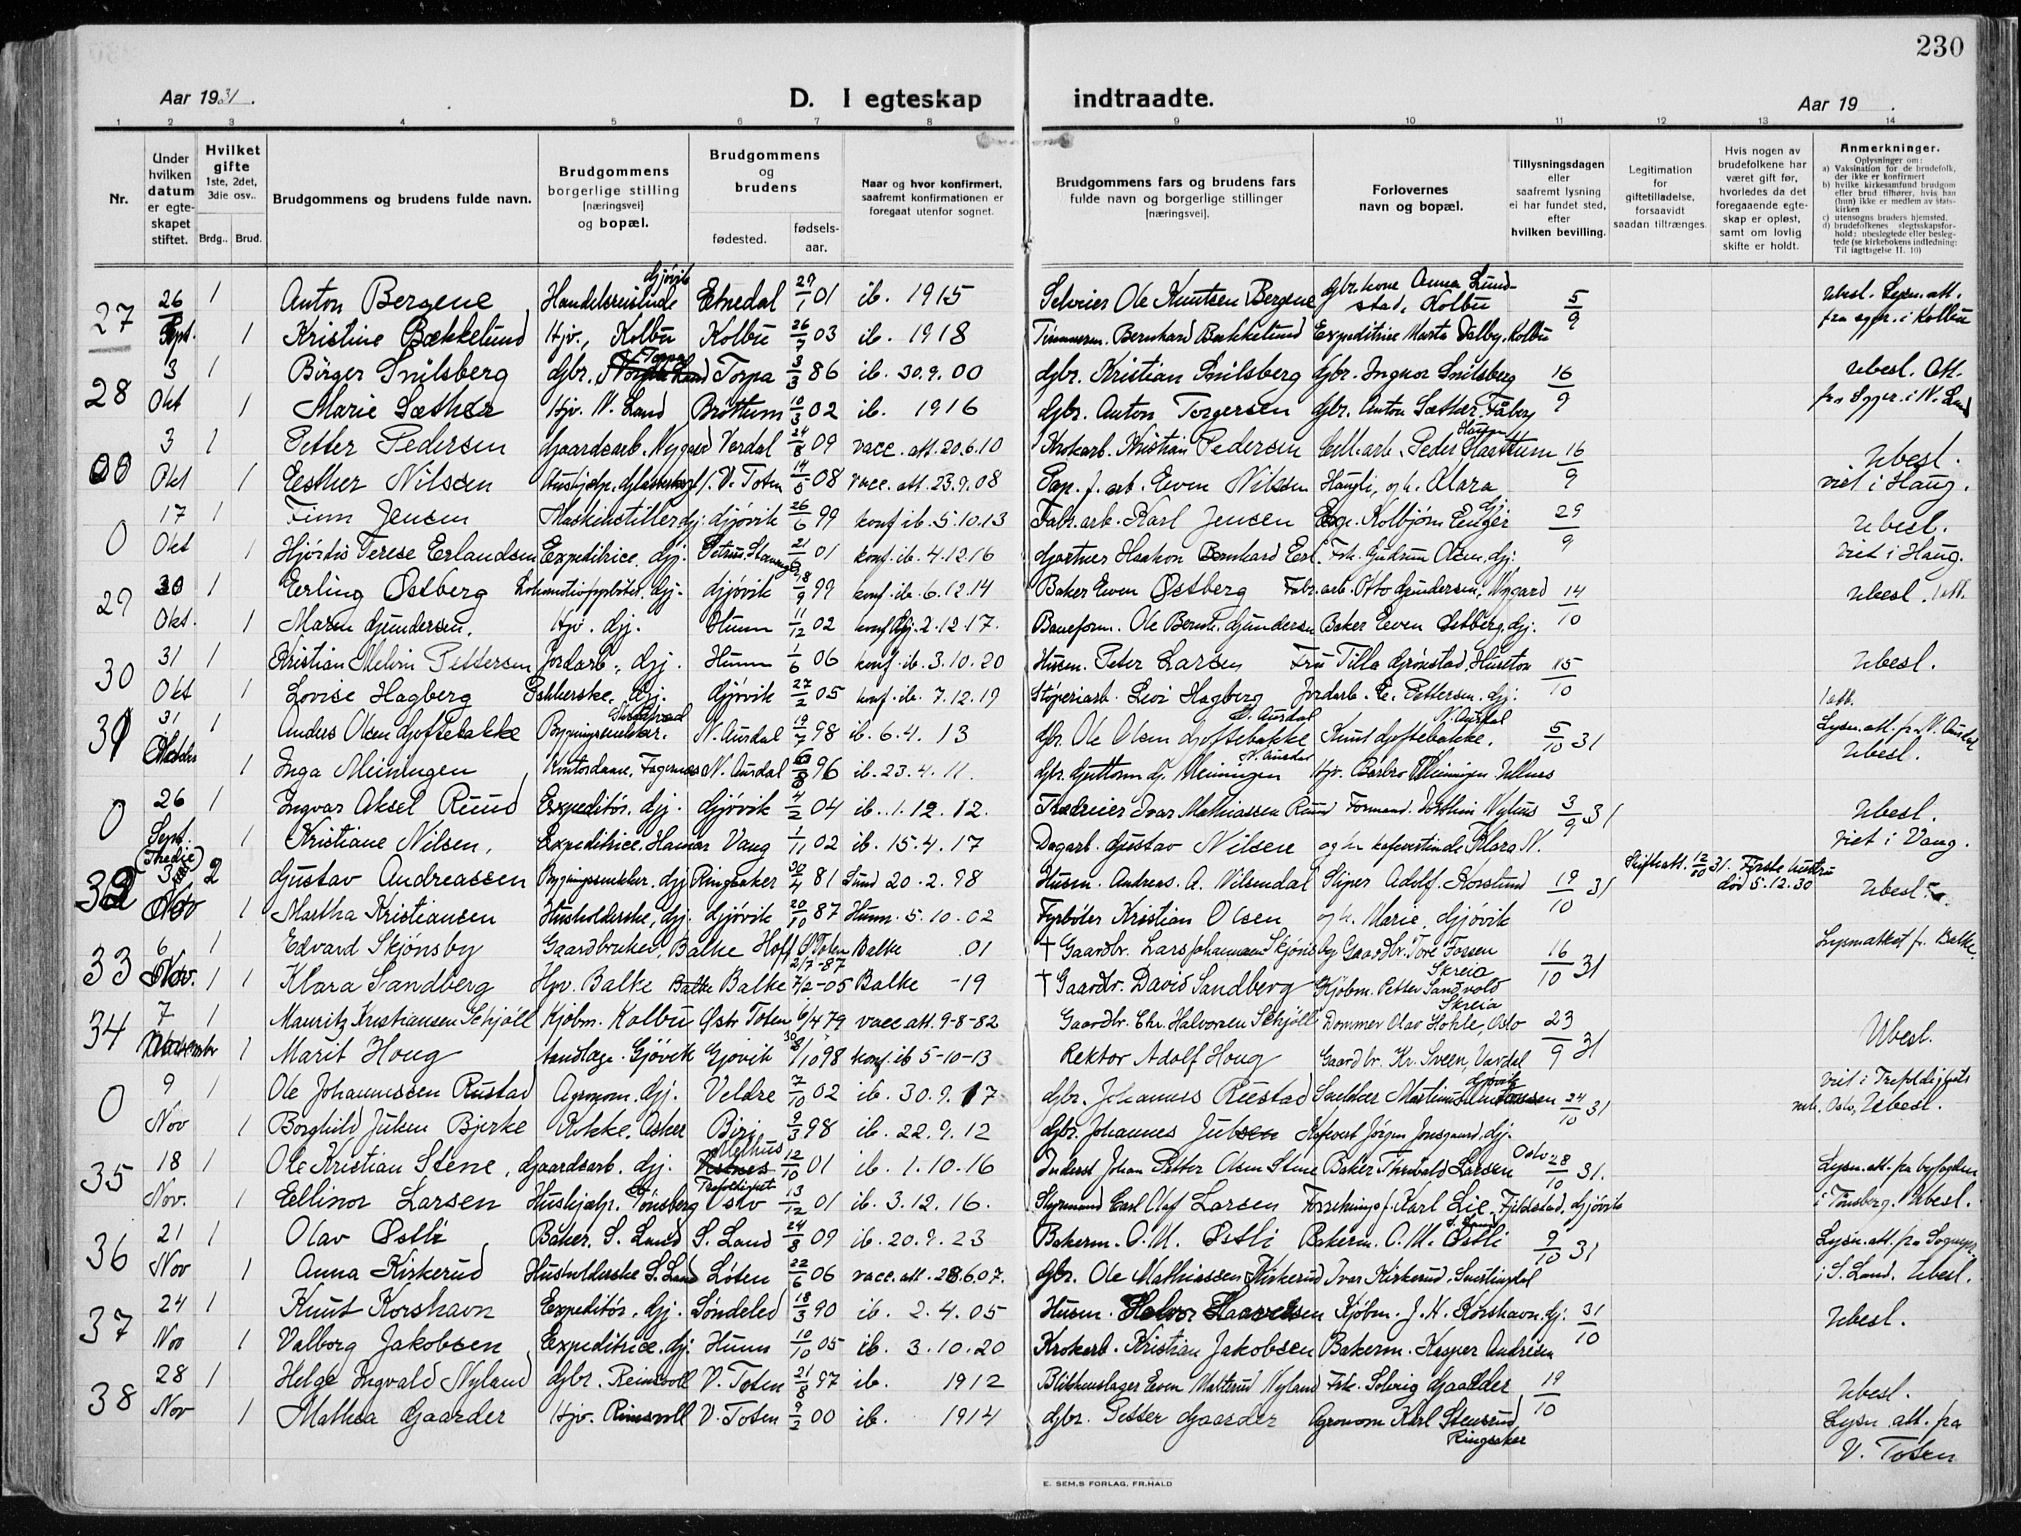 230
Aar 1931.
D. I egteskap indtraadte.
Aar 19 .
1 2 3 4 5 6 7 8 9 10 11 12 13 14
Nr.
Under hvilken datum er egteskapet stiftet.
Hvilket gifte 1ste, 2det, 3die osv.. Brdg.. Brud.
Brudgommens og brudens fulde navn.
Brudgommens borgerlige stilling [næringsvei] og bopæl.
Brudgommens og brudens fødested. fødsels-aar.
Naar og hvor konfirmert, saafremt konfirmationen er foregaat utenfor sognet.
Brudgommens fars og brudens fars fulde navn og borgerlige stillinger [næringsvei].
Forlovernes navn og bopæl.
Tillysningsdagen eller saafremt lysning ei har fundet sted, efter hvilken bevilling.
Legitimation for giftetilladelse, forsaavidt saadan tiltrænges.
Hvis nogen av brudefolkene har været gift før, hvorledes da det foregaaende egteskap er opløst, samt om lovlig skifte er holdt.
Anmerkninger.
Oplysninger om:
a) Vaksination for de brudefolk, der ikke er konfirmert
b) hvilke kirkesamfund brudgom eller brud tilhører, hvis han (hun) ikke er medlem av statskirken
c) utensogns bruders hjemsted.
d) brudefolkenes slegtsskapsforhold: ubeslegtede eller beslegtede (se kirkebokens indledning: Til iagttagelse II. 10)
27 26 1 Anton Bergene Handelsreisende Gjøvik Etnedal 27/1 01 ib. 1915 Selveier Ole Knutsen Bergene Gbr.kone Anna Lundstad, Kolbu 5/9 Ubesl. Lysn.att. fra sgpr. i Kolbu
Sept. 1 Kristine Bækkelund Hjv., Kolbu Kolbu 26/7 03 ib. 1918 Tømmerm. Bernhard Bækkelund Expeditrise Marta Dalby, Kolbu
28 3 1 Birger Snilsberg Gbr. Torpa Torpa 3/3 86 ib. 30.9.00 Gbr. Kristian Snilsberg Gbr. Ingvar Snilsberg 16/9 Ubesl. Att. fra Sgpr. i N. Land
Okt 1 Marie Sæther Hjv. N. Land Brøttum 10/3 02 ib. 1916 Gbr. Anton Torgersen Gbr. Anton Sæther, Fåberg
00 3 1 Petter Pedersen Gaardsarb. Nygard Vardal 24/8 09 vacc. att. 20.6.10 Krokarb. Kristian Pedersen Cell.arb. Peder Hasttum 16/9 Ubesl.
Okt 1 Esther Nilsen V. Toten 14/5 08 vacc. att. 23.9.08 Pap. f. arb. Even Nilsen Haugli, og h. Klara viet i Haug.
0 17 1 Finn Jensen Maskinstiller Gj. Gjøvik 26/6 99 konf ib. 5.10.13 Fabr.arb. Karl Jensen Exp. Kolbjørn Enger Gj. 29/9 Ubesl.
Okt 1 Hjørdis Terese Erlandsen Expeditrice. Gj. Petrus. Stavanger 21/6 01 konf. ib. 4.12 16 Gartner Haakon Bernhard Erl. Frk. Gudrun Olsen, Gj. viet i Haug.
29 30 1 Erling Østberg Lokomotivfyrbøter, Gj. Gjøvik 18/9 99 konf. ib. 6.12.14 Baker Even Østberg Fabr.arb. Otto Gundersen, Nygard 14/10 Ubesl. 1 att.
Okt. 1 Maren Gundersen. Hjv. Gj. Hunn 11/12 02 konf Gj. 2.12.17. Baneform. Ole Bernh. Gundersen Baker Even Østberg, Gj.
30 31 1 Kristian Melvin Pettersen Jordarb., Gj. Hunn 1/6 06 konf. ib. 3.10.20 Husm. Peter Larsen Fru Tilla Grønstad, Hunton 15/10 Ubesl.
Okt 1 Lovise Hagberg Pakkerske, Gj. Gjøvik 27/2 05 konf. ib. 7.12.19 Støperiarb. Levi Hagberg Jordarb. E. Pettersen. Gj. 1 att.
31 31 1 Anders Olsen Goftebakke Bygningssnekker. N. Aurdal 19/7 98 ib. 6.4.13 Gbr. Ole Olsen Goftebakke N. Aurdal Knut Goftebakke. N. Aurdal 5/10 31 Lysn. att. fra N. Aurdal Ubesl.
Oktober 1 Inga Meiningen Kontordame. Fagernes N. Aurdal 96 ib. 23.4.11. Gbr. Guttorm G. Meiningen N. Aurdal Hjv. Barbro Meiningen
0 26 1 Ingvar Aksel Ruud Expeditør. Gj. Gjøvik 4/2 04 ib. 1.12.12. Trædreier Ivar Mathiassen Ruud Formand. Nylius 3/9 31 Ubesl.
Sept. 1 Kristiane Nilsen, Expeditrice. Hamar Vang 1/11 02 ib. 15.4.17 Dagarb. Gustav Nilsen og h. kafevertinde Klara N. viet i Vang.
32 (Tredie) 3 Nov 2 Gustav Andreassen Bygningssnekker, Gj. Ringsaker 30/4 81 Sund 20.2.98 Husm. Andreas. A. Nilsendal Sliper Adolf Korslund 19/10 31 Skifteatt. 12/10 31. Første hustru død 5.12.30 Ubesl.
1 Martha Kristiansen Husholderske, Gj. Gjøvik 20/10 87 Hunn. 5.10.02 Fyrbøter Kristian Olsen og h. Marie. Gjøvik
33 6 1 Edvard Skjønsby Gaardbruker, Balke Hoff Ø. Toten 2/7-87 Balke 01 † Gaardbr. Lars Johannessen Skjønsby Gaardbr. Tore Fossen Skreia 16/10 31 Lysn.attest fr. Balke.
Nov. 1 1 Klara Sandberg Hpv. Balke Balke Balke 7/2-05 Balke -19 † Gaardbr. David Sandberg Kjøbm. Petter Sandvold Skreia
34 7 1 Mauritz Kristiansen Schjøll Kjøbm. Kolbu Østr Toten 6/4 79 vacc att. 9-8-82 Gaardbr. Chr. Halvorsen Schjøll Dommer Olav Hohle, Oslo 23/9 31 Ubesl.
November 1 Marit Houg tandlæge. Gjøvik Gjøvik 98 konf. ib 5-10-13 Rektor Adolf Houg Gaardbr. Kr. Sveen, Vardal
0 9 1 Ole Johannessen Rustad Agronom. Gj. Veldre 7/10 02 ib. 30.9.17 Gbr. Johannes Rustad Snekker Martin Gjøvik 24/10 31 viet i Trefoldighets mh. Oslo, Ubesl.
Nov 1 Borghild Julsen Bjerke Kokke. Asker Biri 9/3 98 ib. 22.9.12 Gbr. Johannes Julsen Kafevert Jørgen Jonsgaard, Gj.
35 18 1 Ole Kristian Stene, Gaardsarb. Gj. Melhus 12/10 01 ib. 1.10.16 Inderst Johan Petter Olsen Stene Baker Thorvald Larsen Oslo 28/10 31. Lysn.att. fra byfogden i Tønsberg. Ubesl.
Nov. 1 Ellinor Larsen Hushjælp. Tønsberg Trefoldighet Oslo 13/12 01 ib. 3.12.16. Styrmand Carl Olaf Larsen Forretningsf. Karl Lie. Fjeldstad, Gjøvik
36 21 1 Olav Østli Baker. S. Land S. Land 24/8 09 ib. 20.9.23 Bakerm. O.M. Østli Bakerm. O.M. Østli S. Land 9/10 31 Lysn. att. fra Sognepr. i S. Land. Ubesl.
Nov 1 Anna Kirkerud Husholderske S. Land Løten 22/6 06 vacc. att. 28.6.07. Gbr. Ole Mathiassen Kirkerud Ivar Kirkerud. Snertingdal
37 24 1 Knut Korshavn Expeditør, Gj. Søndeled 18/3 90 ib. 2.4.05 Husm. Halvor Haavorsen Kjøbm. J.K. Korshavn. Gj: 31/10 Ubesl.
Nov 1 Valborg Jakobsen Expeditrice. Gj. Hunn 10/10 05 ib. 3.10.20 Krokarb. Kristian Jakobsen Bakerm. Kasper Andrésen
38 28 1 Helge Ingvald Nyland Gbr. Reinsvoll V. Toten 21/8 97 ib. 1912 Blikkenslager Even Matterud Nyland Frk. Solveig Gaarder 19/10 Ubesl.
Nov 1 Mathea Gaarder Hjv. Reinsvoll V. Toten 9/2 00 ib. 1914 Gbr. Petter Gaarder Agronom Karl Stensrud, Ringsaker Lysn. att. fra V. Toten
E. SEM,S FORLAG, FR.HALD